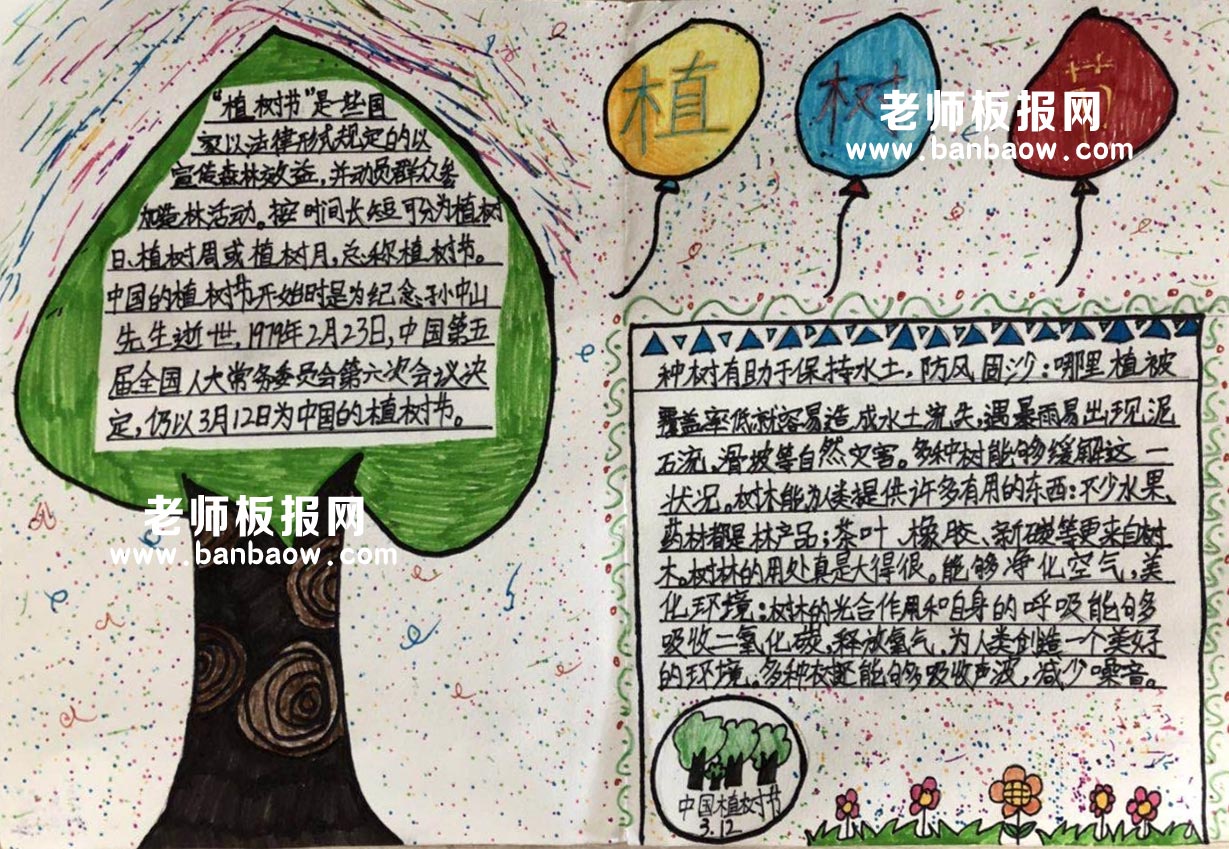 植 树 节
老师板报网
www.banbaow.com
“植树节”是一些国
家以法律形式规定的以
宣传森林效益,并动员群众参
加造林活动。按时间长短可分为植树
日、植树周或植树月,总称植树节。
中国的植树节开始时是为纪念孙中山
先生逝世,1979年2月23日,中国第五
届全国人大常务委员会第六次会议决
定,仍以3月12日为中国的植树节。
老师板报网
www.banbaow.com
种树有助于保持水土,防风固沙:哪里植被
覆盖率低就容易造成水土流失,遇暴雨易出现泥
石流、滑坡等自然灾害。多种树能够缓解这一
状况。树木能为人类提供许多有用的东西:不少水果、
药材都是林产品;茶叶、橡胶、新碳等更来自树
木。树林的用处真是大得很。能够净化空气,美
化环境:树林的光合作用和自身的呼吸能够多
吸收二氧化碳,释放氧气,为人类创造一个美好
的环境、多种树还能够多吸收声波,减少噪音。
中国植树节
3.12